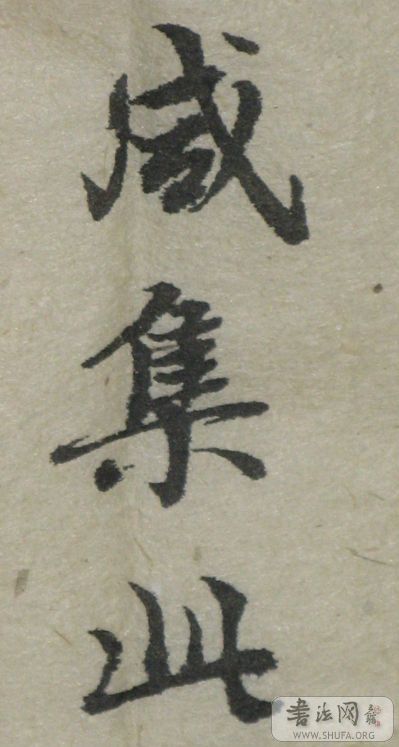 咸集此
書法网
WWW.SHUFA.ORG